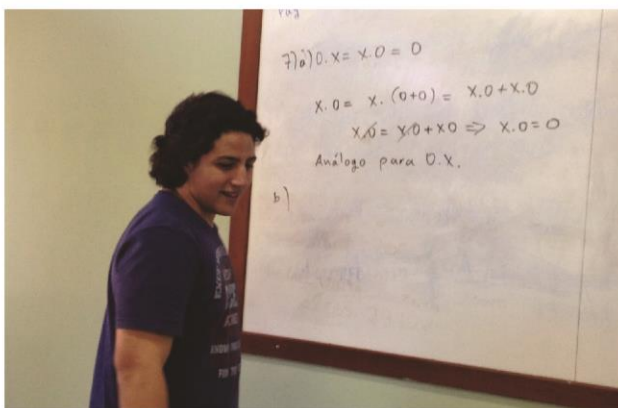 pag
7)a) 0.x = x.0 = 0
x.0 = x.(0+0) = x.0 + x.0
x.0 = x.0 + x0 => x.0 = 0
Análogo para 0.x.
b)